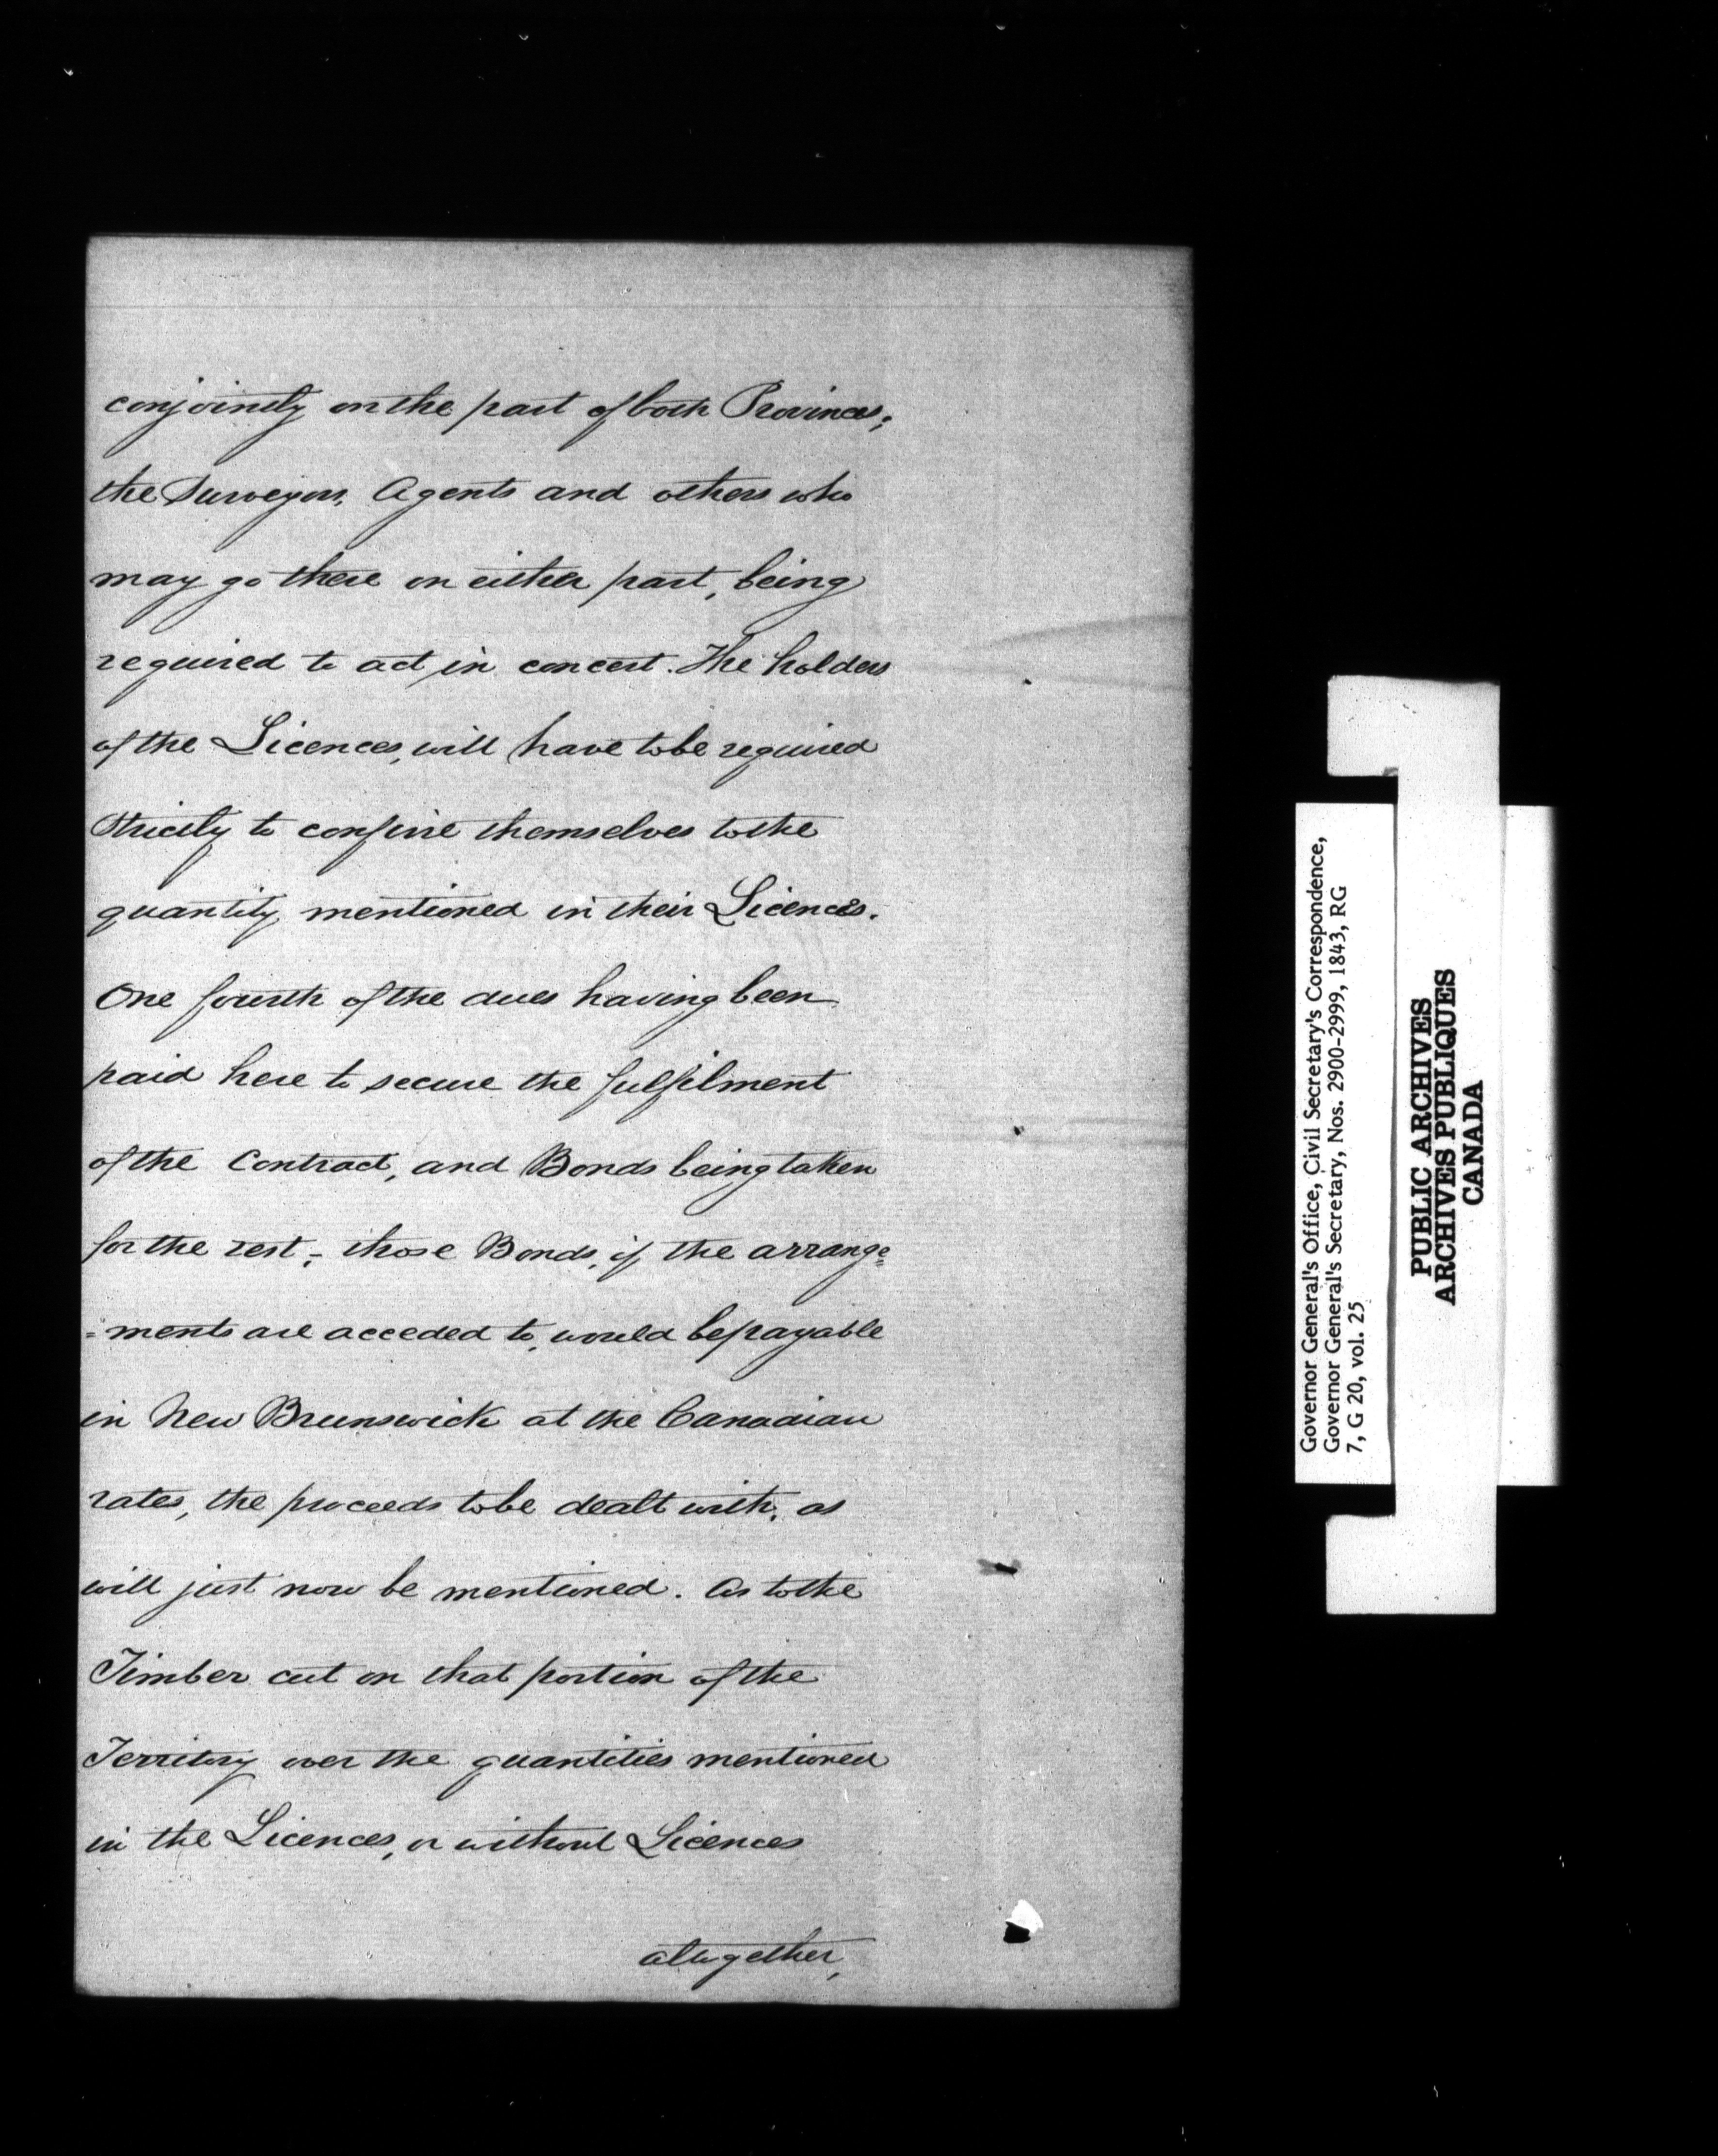 conjointly on the part of both Provinces;
the Surveyors, Agents and others who
may go there on either part, being
required to act in concert. The holders
of the Licences, will have to be required
strictly to confine themselves to the
quantity, mentioned in their Licences.
One fourth of the dues having been
paid here to secure the fulfilment
of the Contract, and Bonds being taken
for the rest; those Bonds, if the arrange=
=ments are acceded to, would be payable
in New Brunswick at the Canadian
rates, the proceeds to be dealt with, as
will just now be mentioned. As to the
Timber cut on that portion of the
Territory over the quantities mentioned
in the Licences, or without Licences
altogether,
Governor General's Office, Civil Secretary's Correspondence,
Governor General's Secretary, Nos. 2900-2999, 1843, RG
7, G 20, vol. 25
PUBLIC ARCHIVES
ARCHIVES PUBLIQUES
CANADA